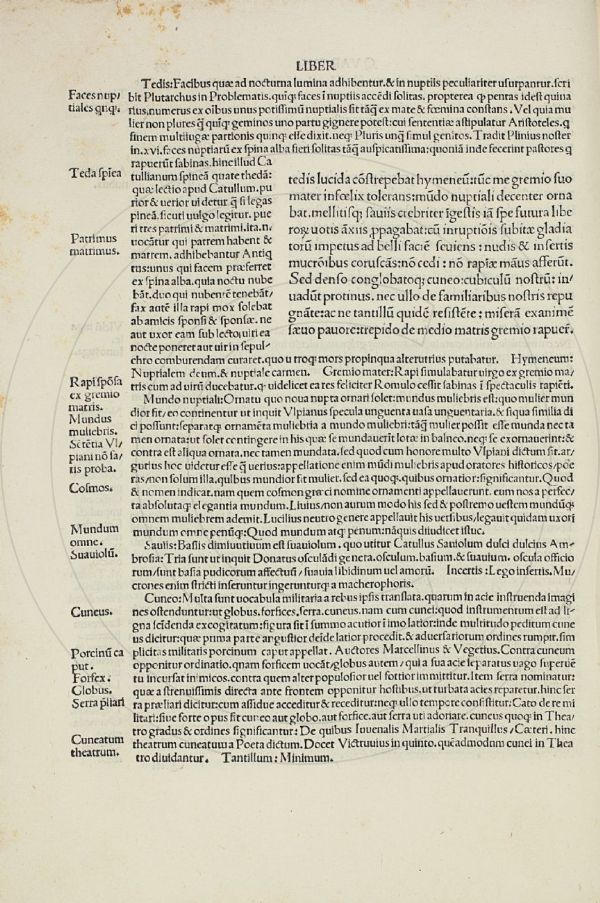 LIBER
Tedis: Facibus quae ad nocturna lumina adhibentur. & in nuptiis peculiariter usurpantur. scri
Faces nup/
tiales qnqȝ.
bit Plutarchus in Problematis. quiqȝ faces ī nuptiis accēdi solitas. propterea ꝙ pentas idest quina
rius, numerus ex oībus unus potissimū nuptialis sit tāqȝ ex mate & foemina constans. Vel quia mu
lier non plures q̄ quiqȝ geminos uno partu gignere potest: cui sententiæ astipulatur Aristoteles. q
sinem multiiugæ partionis quinqȝ esse dixit. neqȝ Pluris unq̄ simul genitos. Tradit Plinius noster
in. xvi. faces nuptiarū ex spina alba fieri solitas tāqȝ auspicatissima: quoniā inde fecerint pastores q
rapuerūt sabinas. hinc illud Ca
Teda spīea
tullianum spineā quate thedā:
quæ lectio apud Catullum. pu
rior & uerior ui detur q̄ si legas
pineā. sicuti uulgo legitur. pue
ri tres patrimi & matrimi. ita. n.
Patrimus
matrimus.
uocātur qui patrem habent &
matrem. adhibebantur Antiq
tus: unus qui facem præferret
ex spina alba. quia noctu nube
bāt. duo qui nubentē tenebāt/
fax autē illa rapi mox solebat
ab amicis sponsi & sponsæ. ne
aut uxor eam sub lecto uiri ea
nocte poneret aut uir in sepul/
tedis lucida cōstrepebat hymeneū: tūc me gremio suo
mater infœlix tolerans: mūdo nuptiali decenter orna
bat. mellitisqȝ sauiis crebriter īgestis iā spe futura libe
roꝝ uotis āxiis ꝓpagabat: cū inruptiōis subitæ gladia
torū impetus ad belli faciē seuiens: nudis & insertis
mucrōibus coruscās: nō cedi: nō rapiæ māus afferūt.
Sed denso conglobatoqȝ cuneo: cubiculū nostrū: in/
uadūt protinus. nec ullo de familiaribus nostris repu
gnāte: ac ne tantillū quidē resistēre: miserā exanimē
sæuo pauore: trepido de medio matris gremio rapuer̄.
chro comburendam curaret. quo utroqȝ mors propinqua alterutrius putabatur. Hymeneum:
Nuptialem deum. & nuptiale carmen. Gremio mater: Rapi simulabatur uirgo ex gremio ma/
Rapi spōsa
ex gremio
matris.
tris cum ad uirū ducebatur. qȝ uidelicet ea res feliciter Romulo cessit sabinas ī spectaculis rapiēti.
Mundo nuptiali: Ornatu quo noua nupta ornari solet: mundus muliebris est: quo mulier mun
Mundus
muliebris.
dior fit/ eo continentur ut inquit Vlpianus specula unguenta uasa unguentaria. & siqua similia di
ci possunt: separatqȝ ornamēta muliebria a mundo muliebri: tāqȝ mulier possit esse munda nec ta
Sētētia Vl/
piani nō sa/
tis proba.
men ornata: ut solet contingere in his quæ se mundauerīt lotæ in balneo. neqȝ se exornauerint: &
contra est aliqua ornata. nec tamen mundata. sed quod cum honore multo Vlpiani dictum sit. ar/
gutius hoc uidetur esse q̄ uerius: appellatione enim mūdi muliebris apud oratores historicos/ poe
ras/ non solum illa. quibus mundior fit mulier. sed ea quoqȝ. quibus ornatior: significantur. Quod
Cosmos.
& nomen indicat. nam quem cosmon græci nomine ornamenti appellauerunt. eum nos a perfec/
ta absolutaqȝ elegantia mundum. Liuius/ non aurum modo his sed & postremo uestem mundūqȝ
omnem muliebrem ademit. Lucilius neutro genere appellauit his uersibus/ legauit quidam uxori
Mundum
omne.
mundum omne penūqȝ: Quod mundum atqȝ penum: nāquis diiudicet istuc.
Sauiis: Basiis diminutiuum est suauiolum. quo utitur Catullus Sauiolum dulci dulcius Am/
Suauiolū.
brosia: Tria sunt ut inquit Donatus osculādi genera. osculum. basium. & suauium. oscula officio
rum/ sunt basia pudicorum affectuū/ suauia libidinum uel amorū. Incertis: Lego insertis. Mu/
crones enim stricti inseruntur ingerunturqȝ a machæophoris.
Cuneo: Multa sunt uocabula militaria a rebus ipsis translata. quarum in acie instruenda imagi
Cuneus.
nes ostenduntur: ut globus. forfices. serra. cuneus. nam cum cunei: quod instrumentum est ad li/
gna scīdenda excogitatum: figura sit ī summo acutior ī imo latior: inde multitudo peditum cune
us dicitur: quæ prima parte angustior deīde latior procedit. & aduersariorum ordines rumpit. sim
Porcinū ca
put.
plicitas militaris porcinum caput appellat. Auctores Marcellinus & Vegetius. Contra cuneum
opponitur ordinatio. quam forficem uocāt/ globus autem/ qui a sua acie separatus uago superuē
Forfex.
tu incursat inimicos. contra quem alter populosior uel fortior immittitur. Item serra nominatur:
Globus.
quæ a strenuissimis directa ante frontem opponitur hostibus. ut turbata acies reparetur. hinc ser
Serra p̄liari
ra præliari dicitur: cum assidue acceditur & receditur: neqȝ ullo tempore consistitur: Cato de re mi
litari: siue forte opus sit cuneo aut globo. aut forfice. aut serra uti adoriare. cuneus quoqȝ in Thea/
tro gradus & ordines significantur: De quibus Iuuenalis Martialis Tranquillus/ Cæteri. hinc
Cuneatum
theatrum.
theatrum cuneatum a Poeta dictum. Docet Victruuius in quinto. quēadmodum cunei in Thea
tro diuidantur. Tantillum: Minimum.